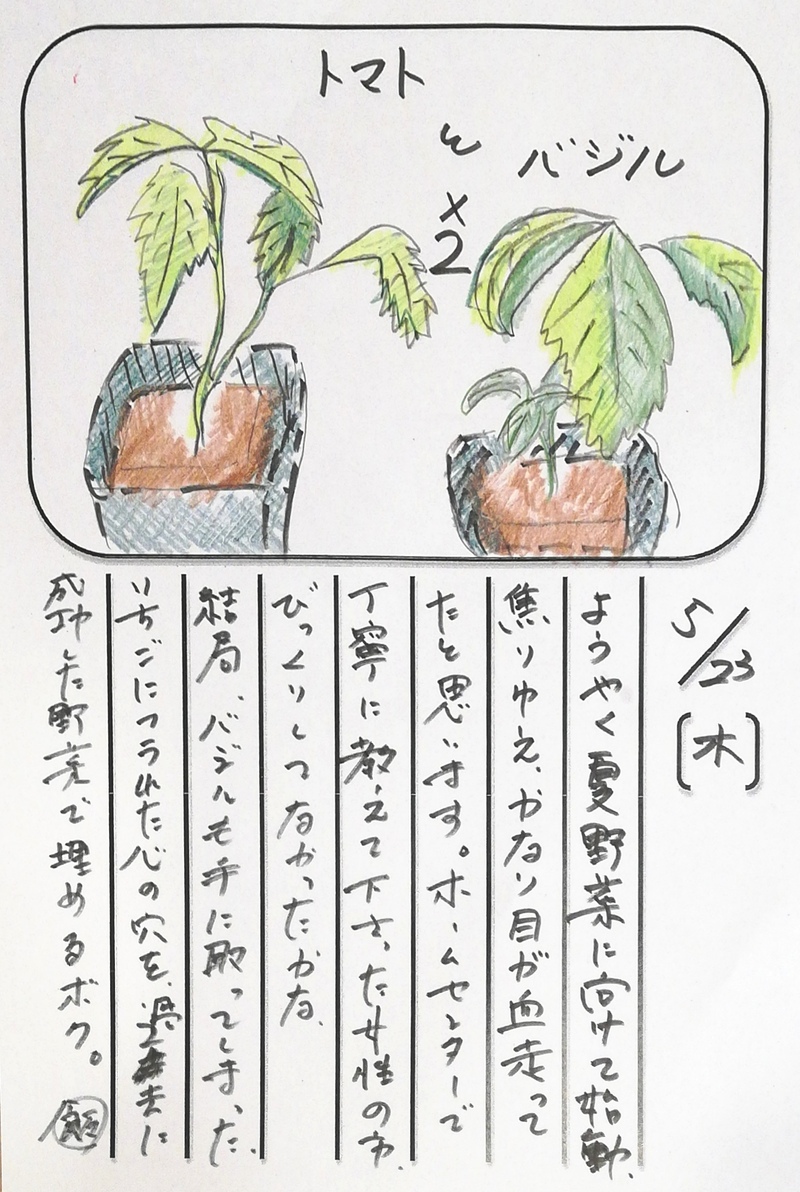 トマト
と
×2
バジル
5/23
[木]
ようやく夏野菜に向けて始動、
焦りゆえ、かなり目が血走って
たと思います。ホームセンターで
丁寧に教えて下さった女性の方、
びっくりしてなかったかな、
結局、バジルも手に取ってしまった、
いちごにつられた心の穴を、過去に
成功した野菜で埋めるボク。